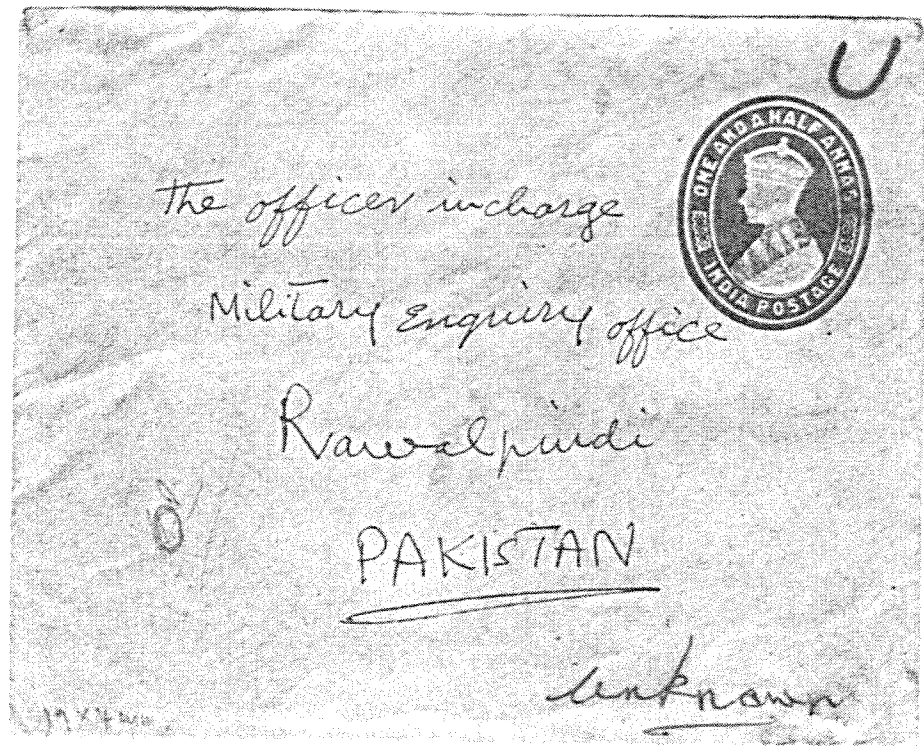 U
ONE AND A HALF ANNAS
INDIA POSTAGE
The officer incharge
Military Enquiry office
Rawalpindi
PAKISTAN
Unknown